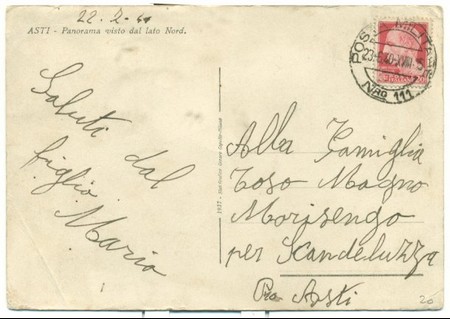 22-2-40
ASTI - Panorama visto dal lato Nord.
Saluti dal
figlio
Mario
POSTA MILITARE
Nro 111
Alla Famiglia
Toso Magno
Morisengo
per Scandeluzza
Pro Asti
20